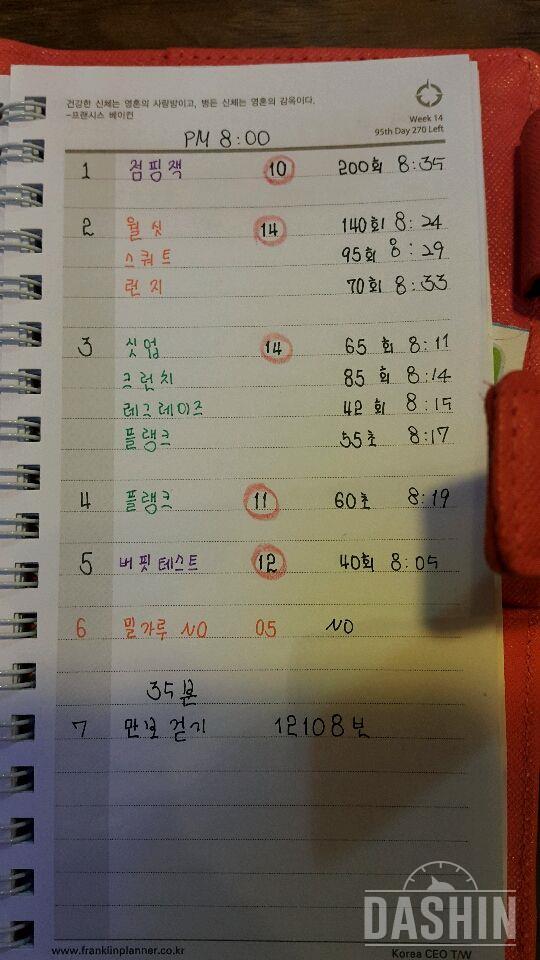 건강한 신체는 영혼의 사랑방이고, 병든 신체는 영혼의 감옥이다.
-프랜시스 베이컨
Week 14
95th Day 270 Left
PM 8:00
1 점핑잭 10 200회 8:35
2 월싯 14 140회 8:24
스쿼트 95회 8:29
런지 70회 8:33
3 싯업 14 65회 8:11
크런치 85회 8:14
레그레이즈 42회 8:15
플랭크 55초 8:17
4 플랭크 11 60초 8:19
5 버핏테스트 12 40회 8:05
6 밀가루 NO 05 NO
35분
7 만보 걷기 12108보
www.franklinplanner.co.kr
Korea CEO T/W
DASHIN